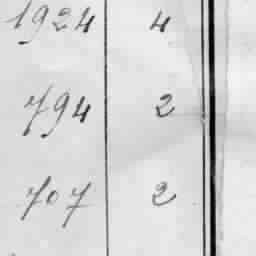 1924 4
794 2
707 2